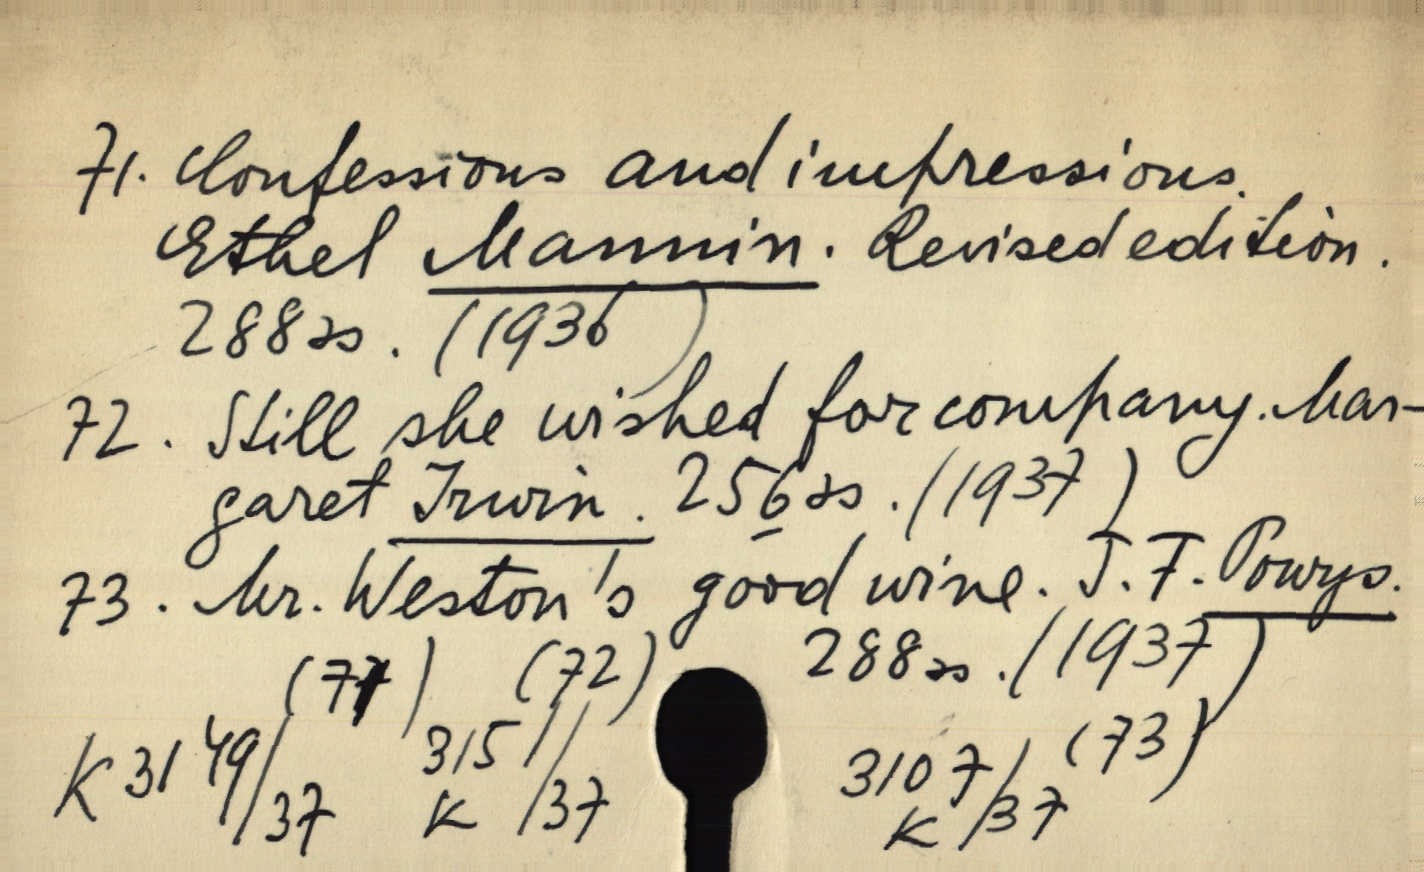 71. Confessions and impressions.
Ethel Mannin. Revised edition.
288 ss. (1936)
72. Still she wished for company. Mar-
garet Irwin. 256 ss. (1937)
73. Mr. Weston's good wine. T. F. Powys.
288 ss. (1937)
(71) (72)
K 3149/37 3151/37 K 3107/37 K (73)